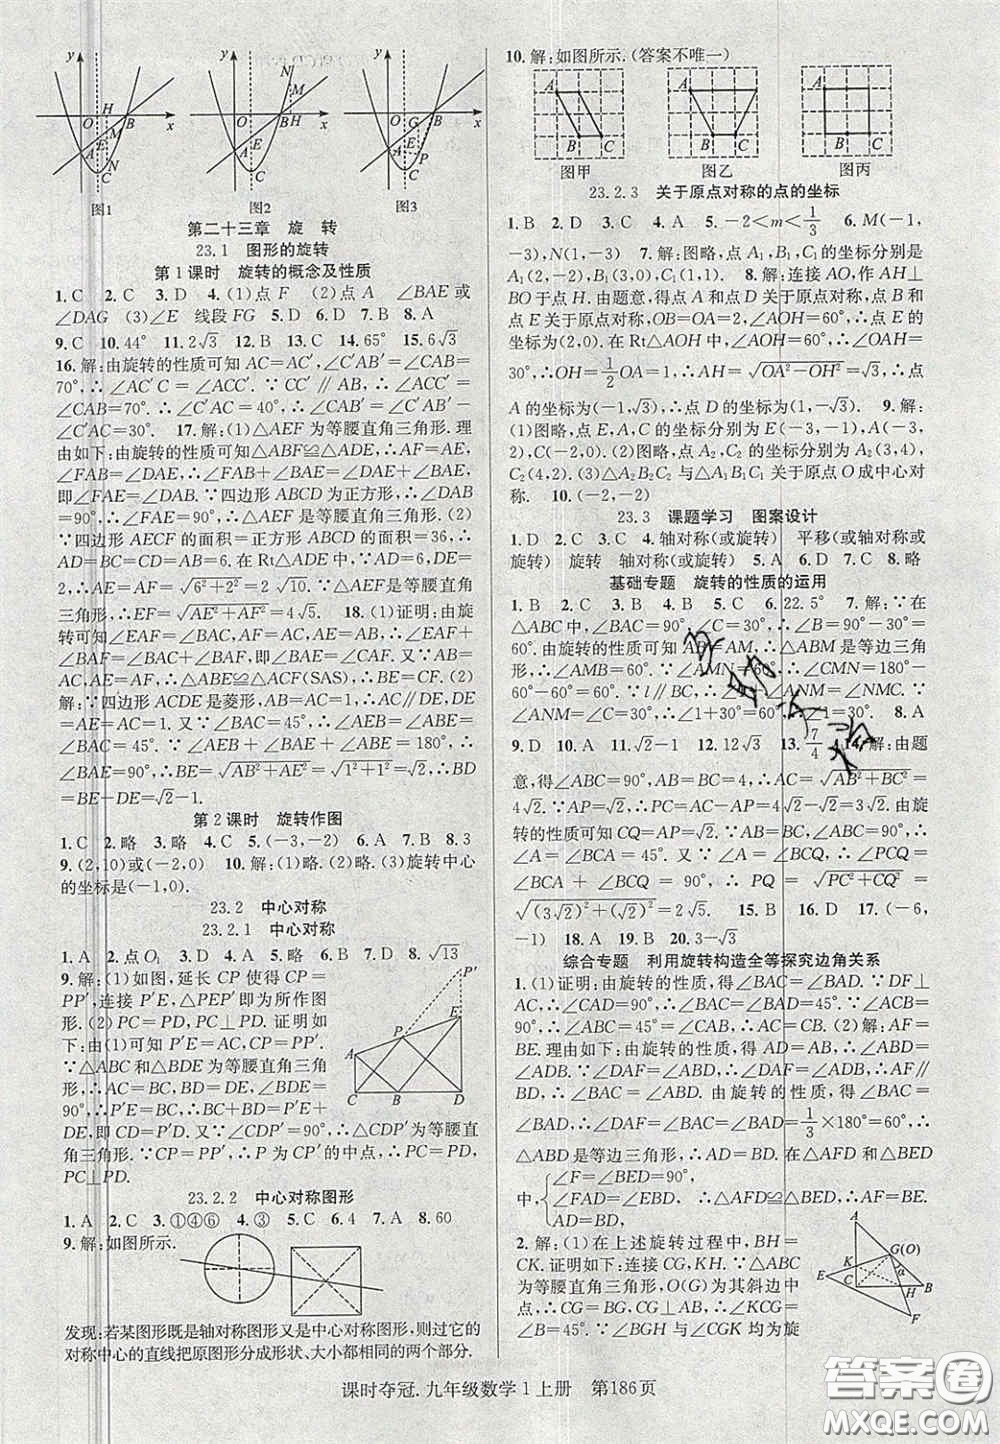 图1 图2 图3
第二十三章 旋 转
23.1 图形的旋转
第1课时 旋转的概念及性质
1.C 2.C 3.D 4.(1)点F (2)点A ∠BAE或
∠DAG (3)∠E 线段FG 5.D 6.D 7.B 8.A
9.C 10.44° 11.2√3 12.B 13.C 14.65° 15.6√3
16.解:由旋转的性质可知AC=AC′,∠C′AB′=∠CAB=
70°,∴∠AC′C=∠ACC′.∵CC′∥AB,∴∠ACC′=
∠CAB=70°.∴∠C′AC=40°,∴∠C′AB=∠CAB-
∠C′AC=30°. 17.解:(1)△AEF为等腰直角三角形.理
由如下:由旋转的性质可知△ABF≌△ADE,∴AF=AE,
∠FAB=∠DAE,∴∠FAB+∠BAE=∠DAE+∠BAE,
即∠FAE=∠DAB.∵四边形ABCD为正方形,∴∠DAB
=90°,∴∠FAE=90°,∴△AEF是等腰直角三角形.(2)
∵四边形AECF的面积=正方形ABCD的面积=36,∴
AD=BC=CD=AB=6.在Rt△ADE中,AD=6,DE=
2,∴AE=AF=√6²+2²=2√10.∵△AEF是等腰直角
三角形,∴EF=√AE²+AF²=4√5. 18.(1)证明:由旋
转可知∠EAF=∠BAC,AF=AC,AE=AB,∴∠EAF+
∠BAF=∠BAC+∠BAF,即∠BAE=∠CAF.又∵AE=
AB,AF=AC,∴△ABE≌△ACF(SAS),∴BE=CF.(2)
解:∵四边形ACDE是菱形,AB=AC=1,∴AC∥DE,DE
=AE=AB=AC=1.又∵∠BAC=45°,∴∠AEB=
∠ABE=∠BAC=45°.∵∠AEB+∠BAE+∠ABE=180°,∴
∠BAE=90°,∴BE=√AB²+AE²=√1²+1²=√2,∴BD
=BE-DE=√2-1.
第2课时 旋转作图
1.C 2.略 3.略 4.C 5.(-3,-4) 6.A 7.B 8.3
9.(2,10)或(-2,0) 10.解:(1)略.(2)略.(3)旋转中心
的坐标是(-1,0).
23.2 中心对称
23.2.1 中心对称
1.A 2.点O₁ 3.A 4.C 5.略 6.B 7.D 8.√13
9.解:(1)如图,延长CP使得CP=
PP′,连接P′E,△PEP′即为所作图
形.(2)PC=PD,PC⊥PD.证明如
下:由(1)可知P′E=AC,CP=PP′.
∵△ABC和△BDE为等腰直角三角
形,∴AC=BC,DE=BD,∠BDE=
90°,∴P′E=BC,∴P′E+DE=BC+
DE,即DP′=CD.又∵∠CDP′=90°,∴△CDP′为等腰直角
三角形.∵CP=PP′,∴P为CP′的中点,∴PC=PD,PC⊥PD.
23.2.2 中心对称图形
1.A 2.B 3.①④⑥ 4.③ 5.C 6.4 7.A 8.60
9.解:如图所示.
发现:若某图形既是轴对称图形又是中心对称图形,则过它的
对称中心的直线把原图形分成形状、大小都相同的两个部分.
10.解:如图所示.(答案不唯一)
图甲 图乙 图丙
23.2.3 关于原点对称的点的坐标
1.B 2.D 3.C 4.A 5.-2<m<1/3 6.M(-1,
-3),N(1,-3) 7.解:图略,点A₁,B₁,C₁的坐标分别是
A₁(2,1),B₁(-1,3),C₁(-3,-2). 8.解:连接AO,作AH⊥
BO于点H.由题意,得点A和点D关于原点对称,点B和
点E关于原点对称,OB=OA=2,∠AOH=60°,∴点B的
坐标为(2,0).在Rt△AOH中,∠AOH=60°,∴∠OAH=
30°,∴OH=1/2OA=1,∴AH=√OA²-OH²=√3,∴点
A的坐标为(1,√3),∴点D的坐标为(-1,-√3). 9.解:
(1)图略,点E,A,C的坐标分别为E(-3,-1),A(-3,
2),C(-2,0).(2)图略,点A₂,C₂的坐标分别为A₂(3,4),
C₂(4,2).(3)△A₂B₂C₂与△A₁B₁C₁关于原点O成中心对
称. 10.(-2,-2)
23.3 课题学习 图案设计
1.D 2.C 3.D 4.轴对称(或旋转) 平移(或轴对称或
旋转) 旋转 轴对称(或旋转) 5.A 6.D 7.C 8.略
基础专题 旋转的性质的运用
1.B 2.C 3.B 4.B 5.C 6.22.5° 7.解:∵在
△ABC中,∠BAC=90°,∠C=30°,∴∠B=90°-30°=
60°.由旋转的性质可知AB=AM,∴△ABM是等边三角
形,∴∠AMB=60°.∵∠AMN=60°,∴∠CMN=180°-
60°-60°=60°.∵l∥BC,∴∠1+∠ANM=∠NMC.∵
∠ANM=∠C=30°,∴∠1+30°=60°,∴∠1=30°. 8.A
9.D 10.A 11.√2-1 12.12√3 13.17/4 14.解:由题
意,得∠ABC=90°,AB=BC=4,∴AC=√AB²+BC²=
4√2.∵AP=√2,∴PC=AC-AP=4√2-√2=3√2.由旋
转的性质可知CQ=AP=√2,∠BCQ=∠A.∵AB=BC,∴
∠A=∠BCA=45°.又∵∠BCQ=∠A,∴∠PCQ=
∠BCA+∠BCQ=90°,∴PQ=√PC²+CQ²=
√(3√2)²+(√2)²=2√5. 15.B 16.D 17.(-6,
-1) 18.A 19.B 20.3-√3
综合专题 利用旋转构造全等探究边角关系
1.(1)证明:由旋转的性质,得∠BAC=∠BAD.∵DF⊥
AC,∴∠CAD=90°,∴∠BAC=∠BAD=45°.∵∠ACB=
90°,∴∠ABC=45°,∴AC=CB.(2)解:AF=
BE.理由如下:由旋转的性质,得AD=AB,∴∠ABD=
∠ADB.∵∠BAC=∠BAD,∴∠FAD=∠ADB,∴AF∥
BD,∴∠BAC=∠ABD.由旋转的性质,得∠BAC=
∠BAD,∴∠ABD=∠BAD=∠ADB=1/3×180°=60°,∴
△ABD是等边三角形,∴AD=BD.在△AFD和△BED
中,{∠F=∠BED=90°,
∠FAD=∠EBD,∴△AFD≌△BED,∴AF=BE.
AD=BD,
2.解:(1)在上述旋转过程中,BH=
CK.证明如下:连接CG,KH.∵△ABC
为等腰直角三角形,O(G)为其斜边中
点,∴CG=BG,CG⊥AB,∴∠KCG=
∠B=45°.∵∠BGH与∠CGK均为旋
课时夺冠.九年级数学1上册 第186页
答案圈
MXQE.COM